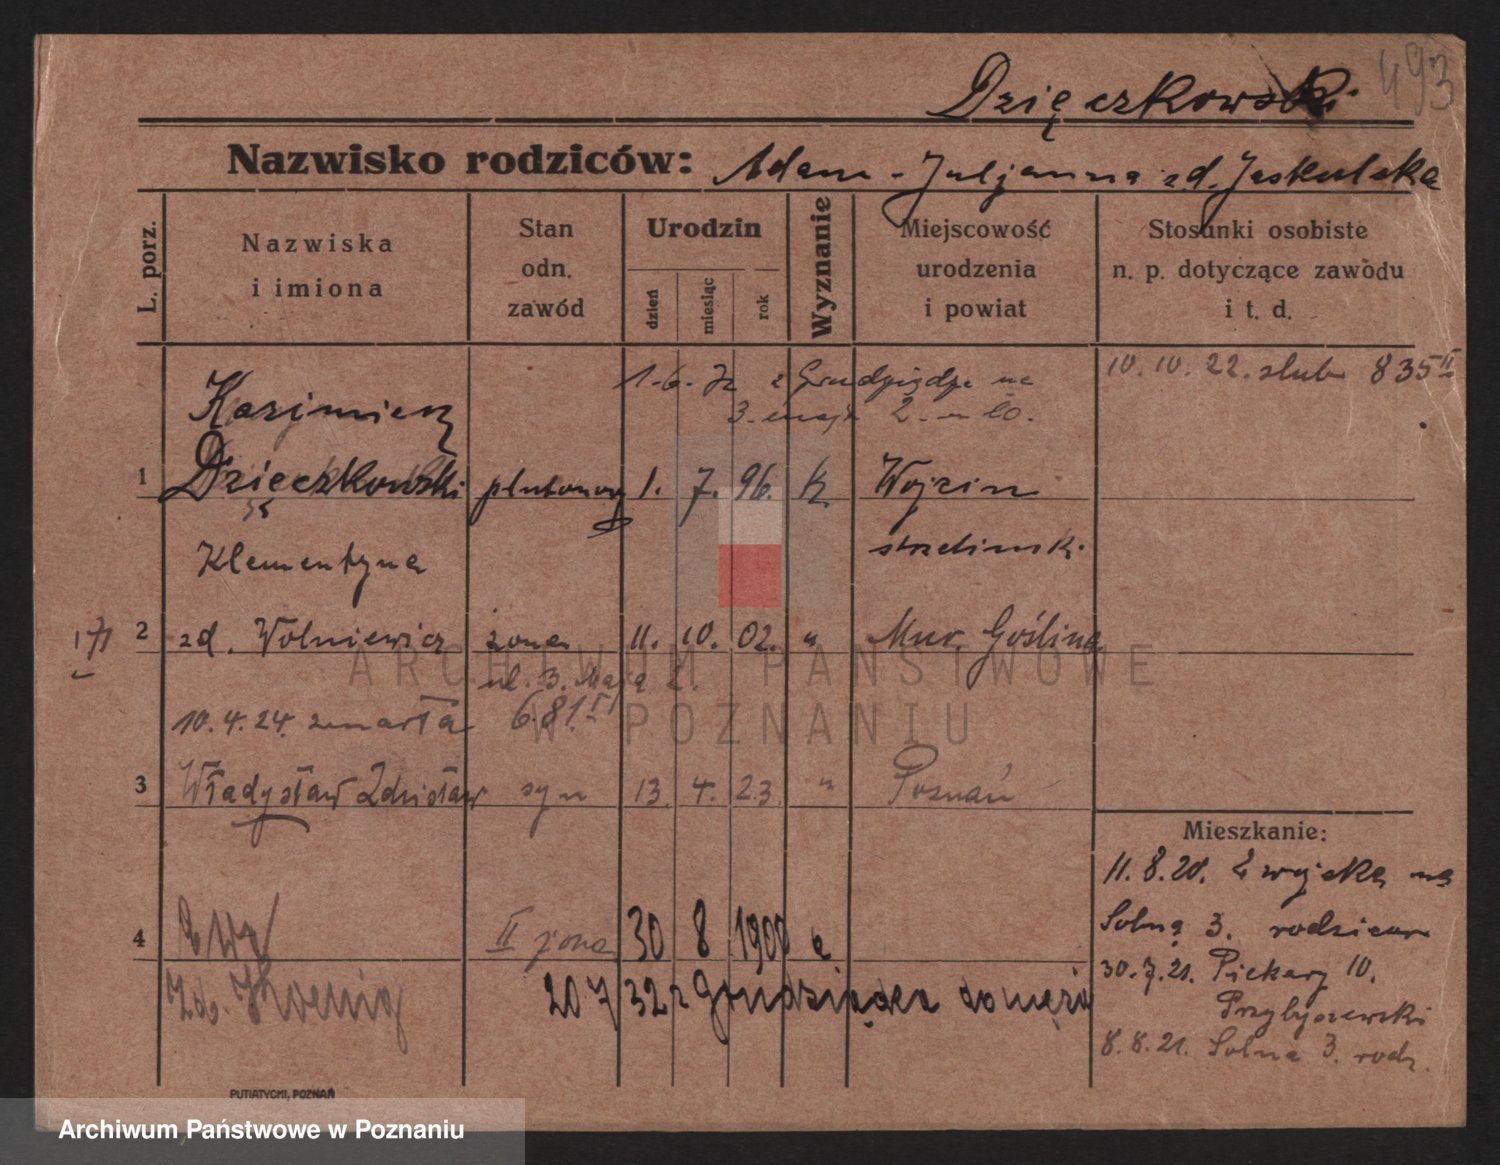 493
Dzięczkowski
Nazwisko rodziców: Adam - Juljanna zd. Jeskulska
L. porz.
Nazwiska
i imiona
Stan
odn.
zawód
Urodzin
dzień
miesiąc
rok
Wyznanie
Miejscowość
urodzenia
i powiat
Stosunki osobiste
n. p. dotyczące zawodu
i t. d.
1.6. z Grudziądza na
3. maja 2.
10.10.22. ślub 835 II
Kazimierz
1 Dzięczkowski plutonowy 1. 7. 96. K. Wojcin
strzeliński.
Klementyna
171
2 zd. Wolniewicz żona 11. 10. 02. " Mur. Goślina
ul. 3. Maja 2.
10.4.24. zmarła 681 II
3 Władysław Zdzisław syn 13. 4. 23. " Poznań
Mieszkanie:
11.8.20. z wojska na
Solną 3. rodzicow
30.7.21. Piekary 10.
Przybyszewski
8.8.21. Solna 3. rodz.
4 II żona 30 8 1900
Zd. Koenig
20 7 32 z Grudziądza do męża
PUTIATYCKI, POZNAŃ
ARCHIWUM PAŃSTWOWE
W POZNANIU
Archiwum Państwowe w Poznaniu